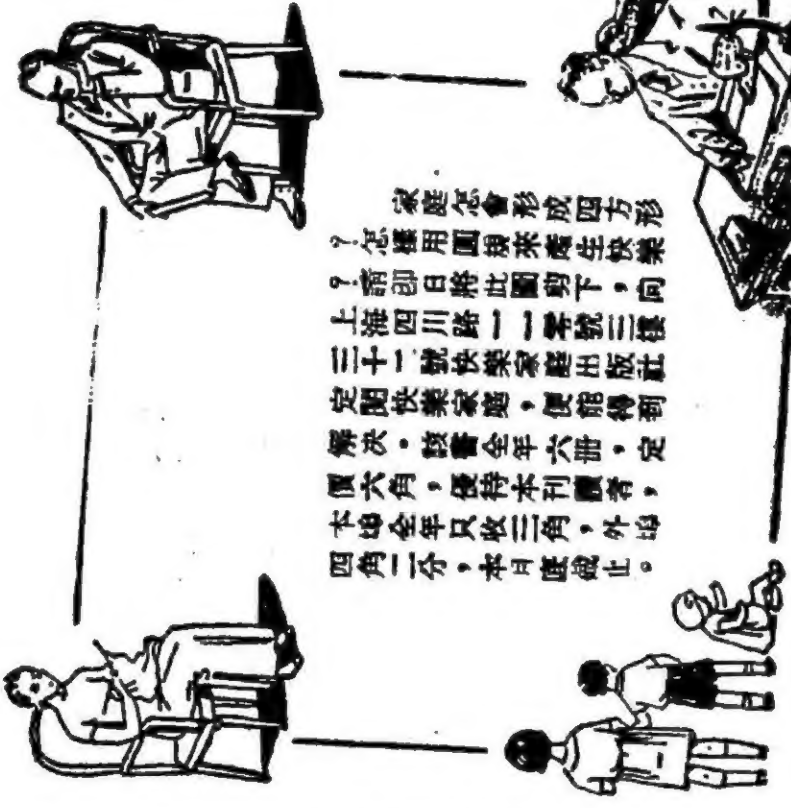 家庭怎會形成四方形
？怎樣用圓規來產生快樂
？請即日將此圖剪下，向
上海四川路一一零號三樓
三十一號快樂家庭出版社
定閱快樂家庭，便能得到
解決。該書全年六冊，定
價大角，優待本刊讀者，
本埠全年只收三角，外埠
四角二分，本月底截止。